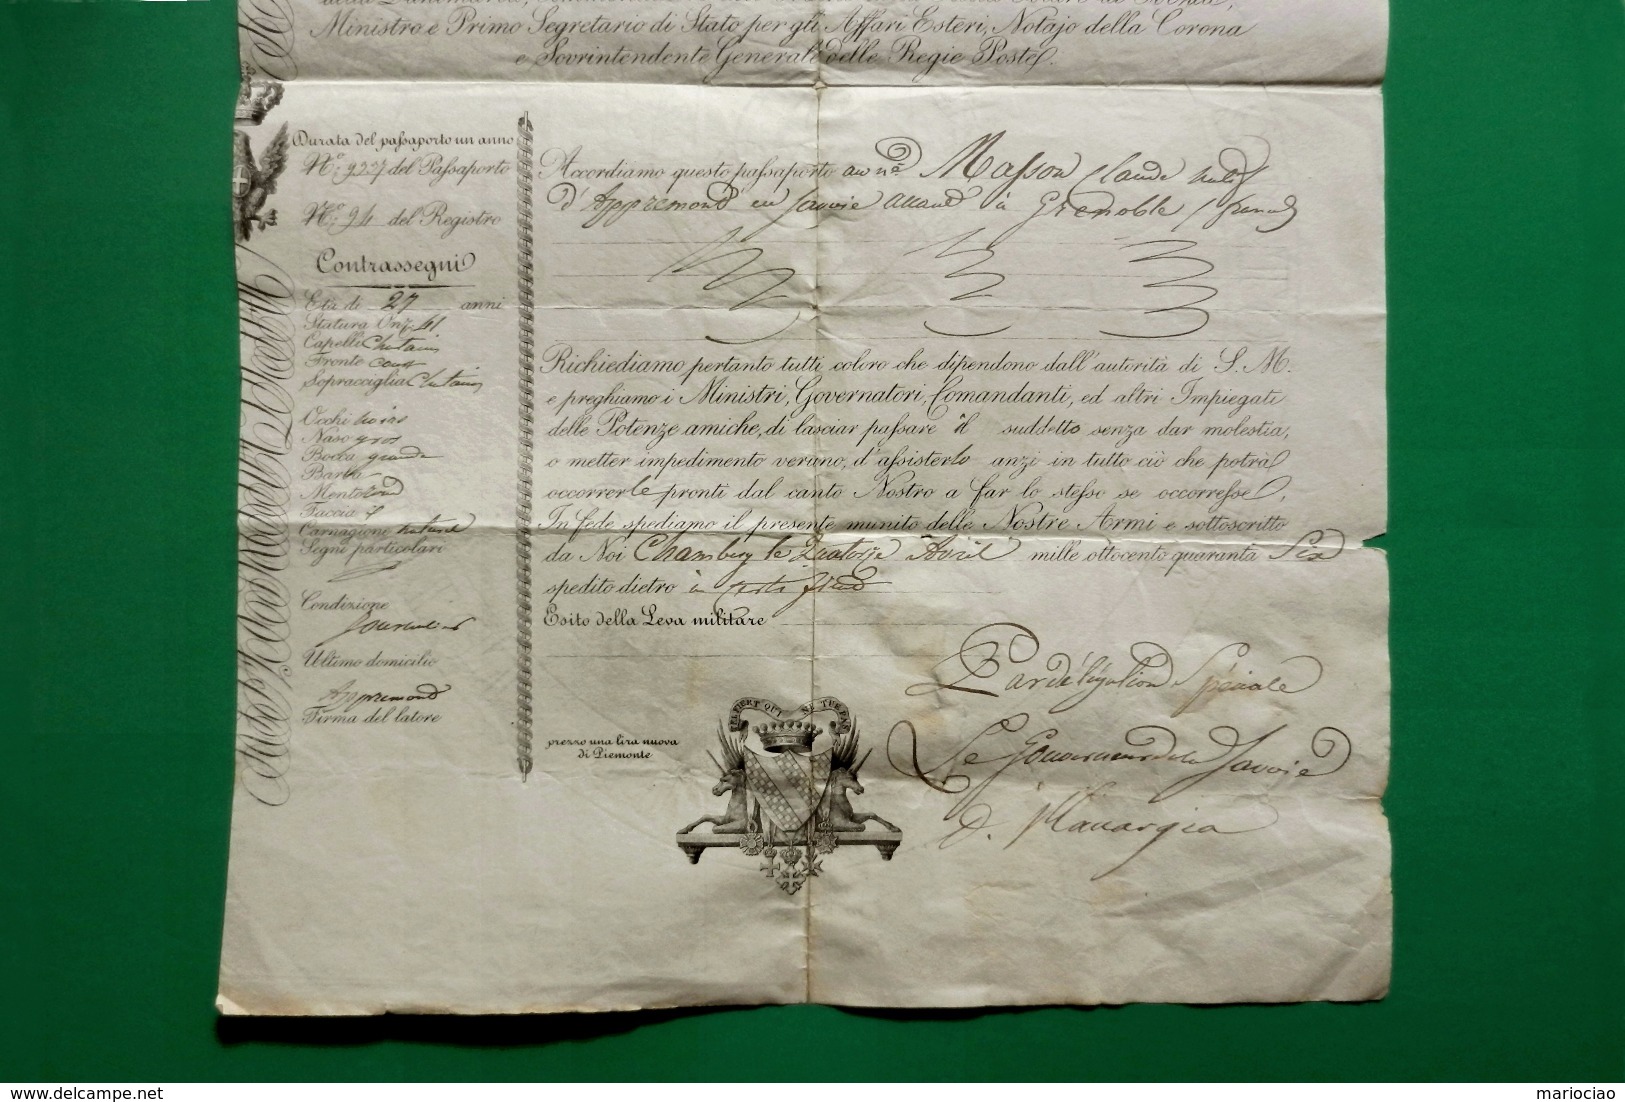 Ministro e Primo Segretario di Stato per gli Affari Esteri, Notajo della Corona
e Sovrintendente Generale delle Regie Poste.
Durata del passaporto un anno
N.º 9227 del Passaporto
N.º 94 del Registro
Contrassegni
Età di 27 anni
Statura Onz. 41
Capelli Chatain
Fronte
Sopracciglia Chatain
Occhi noirs
Naso gros
Bocca grande
Barba
Mento rond
Faccia
Carnagione naturel
Segni particolari
Condizione
Journalier
Ultimo domicilio
Appremond
Firma del latore
Accordiamo questo passaporto au né Masson Claude natif
d'Appremond en Savoie allant à Grenoble
Richiediamo pertanto tutti coloro che dipendono dall'autorità di S. M.
e preghiamo i Ministri, Governatori, Comandanti, ed altri Impiegati
delle Potenze amiche, di lasciar passare il suddetto senza dar molestia,
o metter impedimento veruno, d'assisterlo anzi in tutto ciò che potrà
occorrerle pronti dal canto Nostro a far lo stesso se occorresse.
In fede spediamo il presente munito delle Nostre Armi e sottoscritto
da Noi Chambery le Quatorze Avril mille ottocento quaranta Six
spedito dietro
Esito della Leva militare
prezzo una lira nuova
di Piemonte
Par délégation Spéciale
Le Gouverneur de la Savoie
mariociao